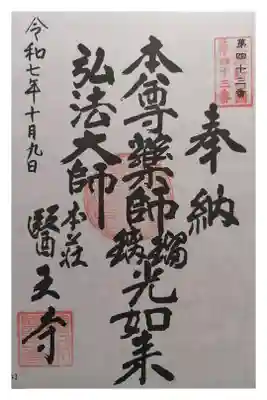 第四十三番
奉納
本尊薬師瑠璃光如来
弘法大師
本荘
醫王寺
令和七年十月九日